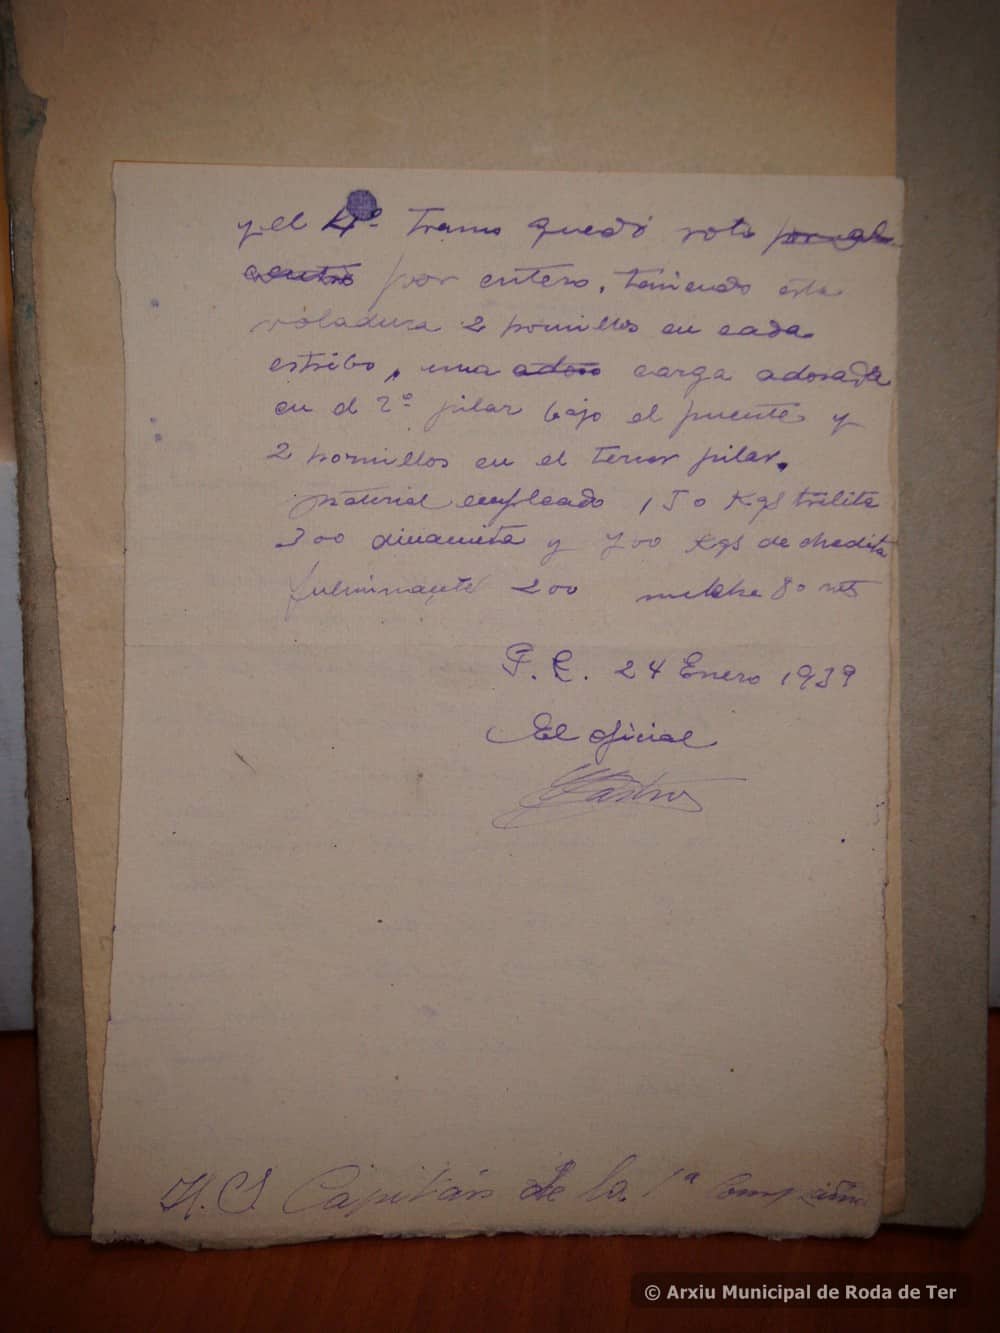 y el 4º tramo quedó roto por el
centro por entero, teniendo esta
voladura 2 hornillos en cada
estribo, una adoso carga adosada
en el 2º pilar bajo el puente y
2 hornillos en el tercer pilar.
material empleado 150 Kgs trilita
300 dinamita y 700 Kgs de chedita
fulminante 200 mecha 80 mts
P. C. 24 Enero 1939
El oficial
Castro
Capitán de la 1ª Compañia
© Arxiu Municipal de Roda de Ter